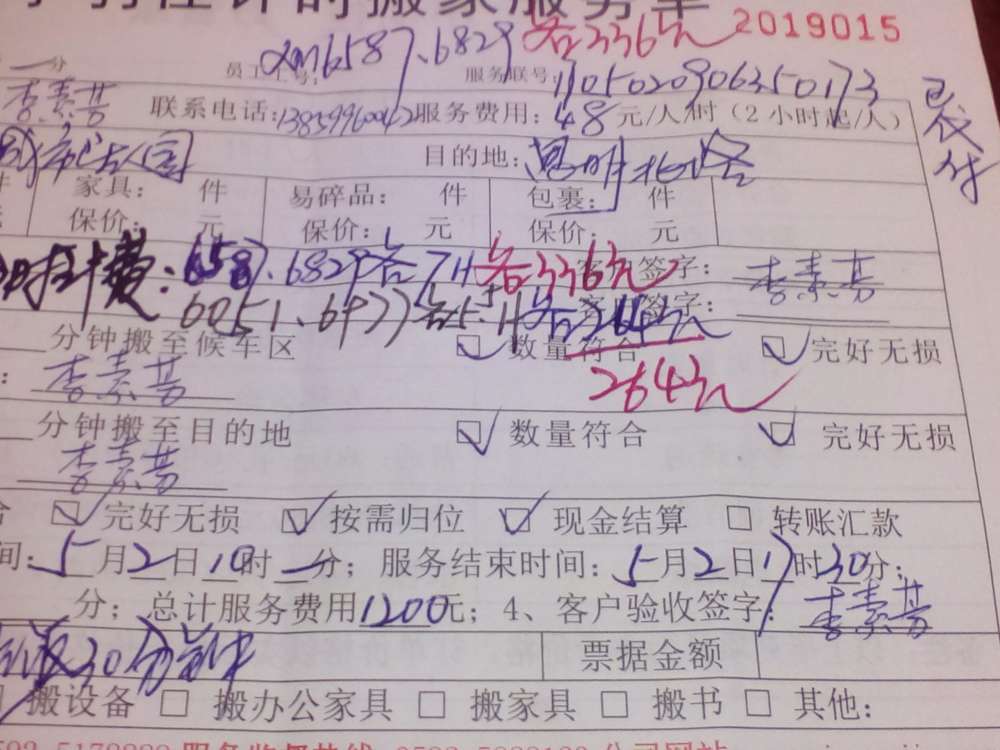 时搬家服务单 2019015
XM6587、6829各336元
分 员工工号: 服务联号: 1105020906350173
李素芬 联系电话:13859960042 服务费用:48元/人/时(2小时起/人) 已收付
公园 目的地:思明北路
家具: 件 易碎品: 件 包裹: 件
保价: 元 保价: 元 保价: 元
时计费:6587、6829各7H各336元 签字: 李素芬
6051、6477各5.5H各264元 签字:
分钟搬至候车区 ☑ 数量符合 ☑ 完好无损
李素芬 264元
分钟搬至目的地 ☑ 数量符合 ☑ 完好无损
李素芬
☑ 完好无损 ☑ 按需归位 ☑ 现金结算 □ 转账汇款
间:5月2日10时一分; 服务结束时间:5月2日17时30分;
分; 总计服务费用1200元; 4、客户验收签字: 李素芬
30分钟 票据金额
搬设备 □ 搬办公家具 □ 搬家具 □ 搬书 □ 其他: